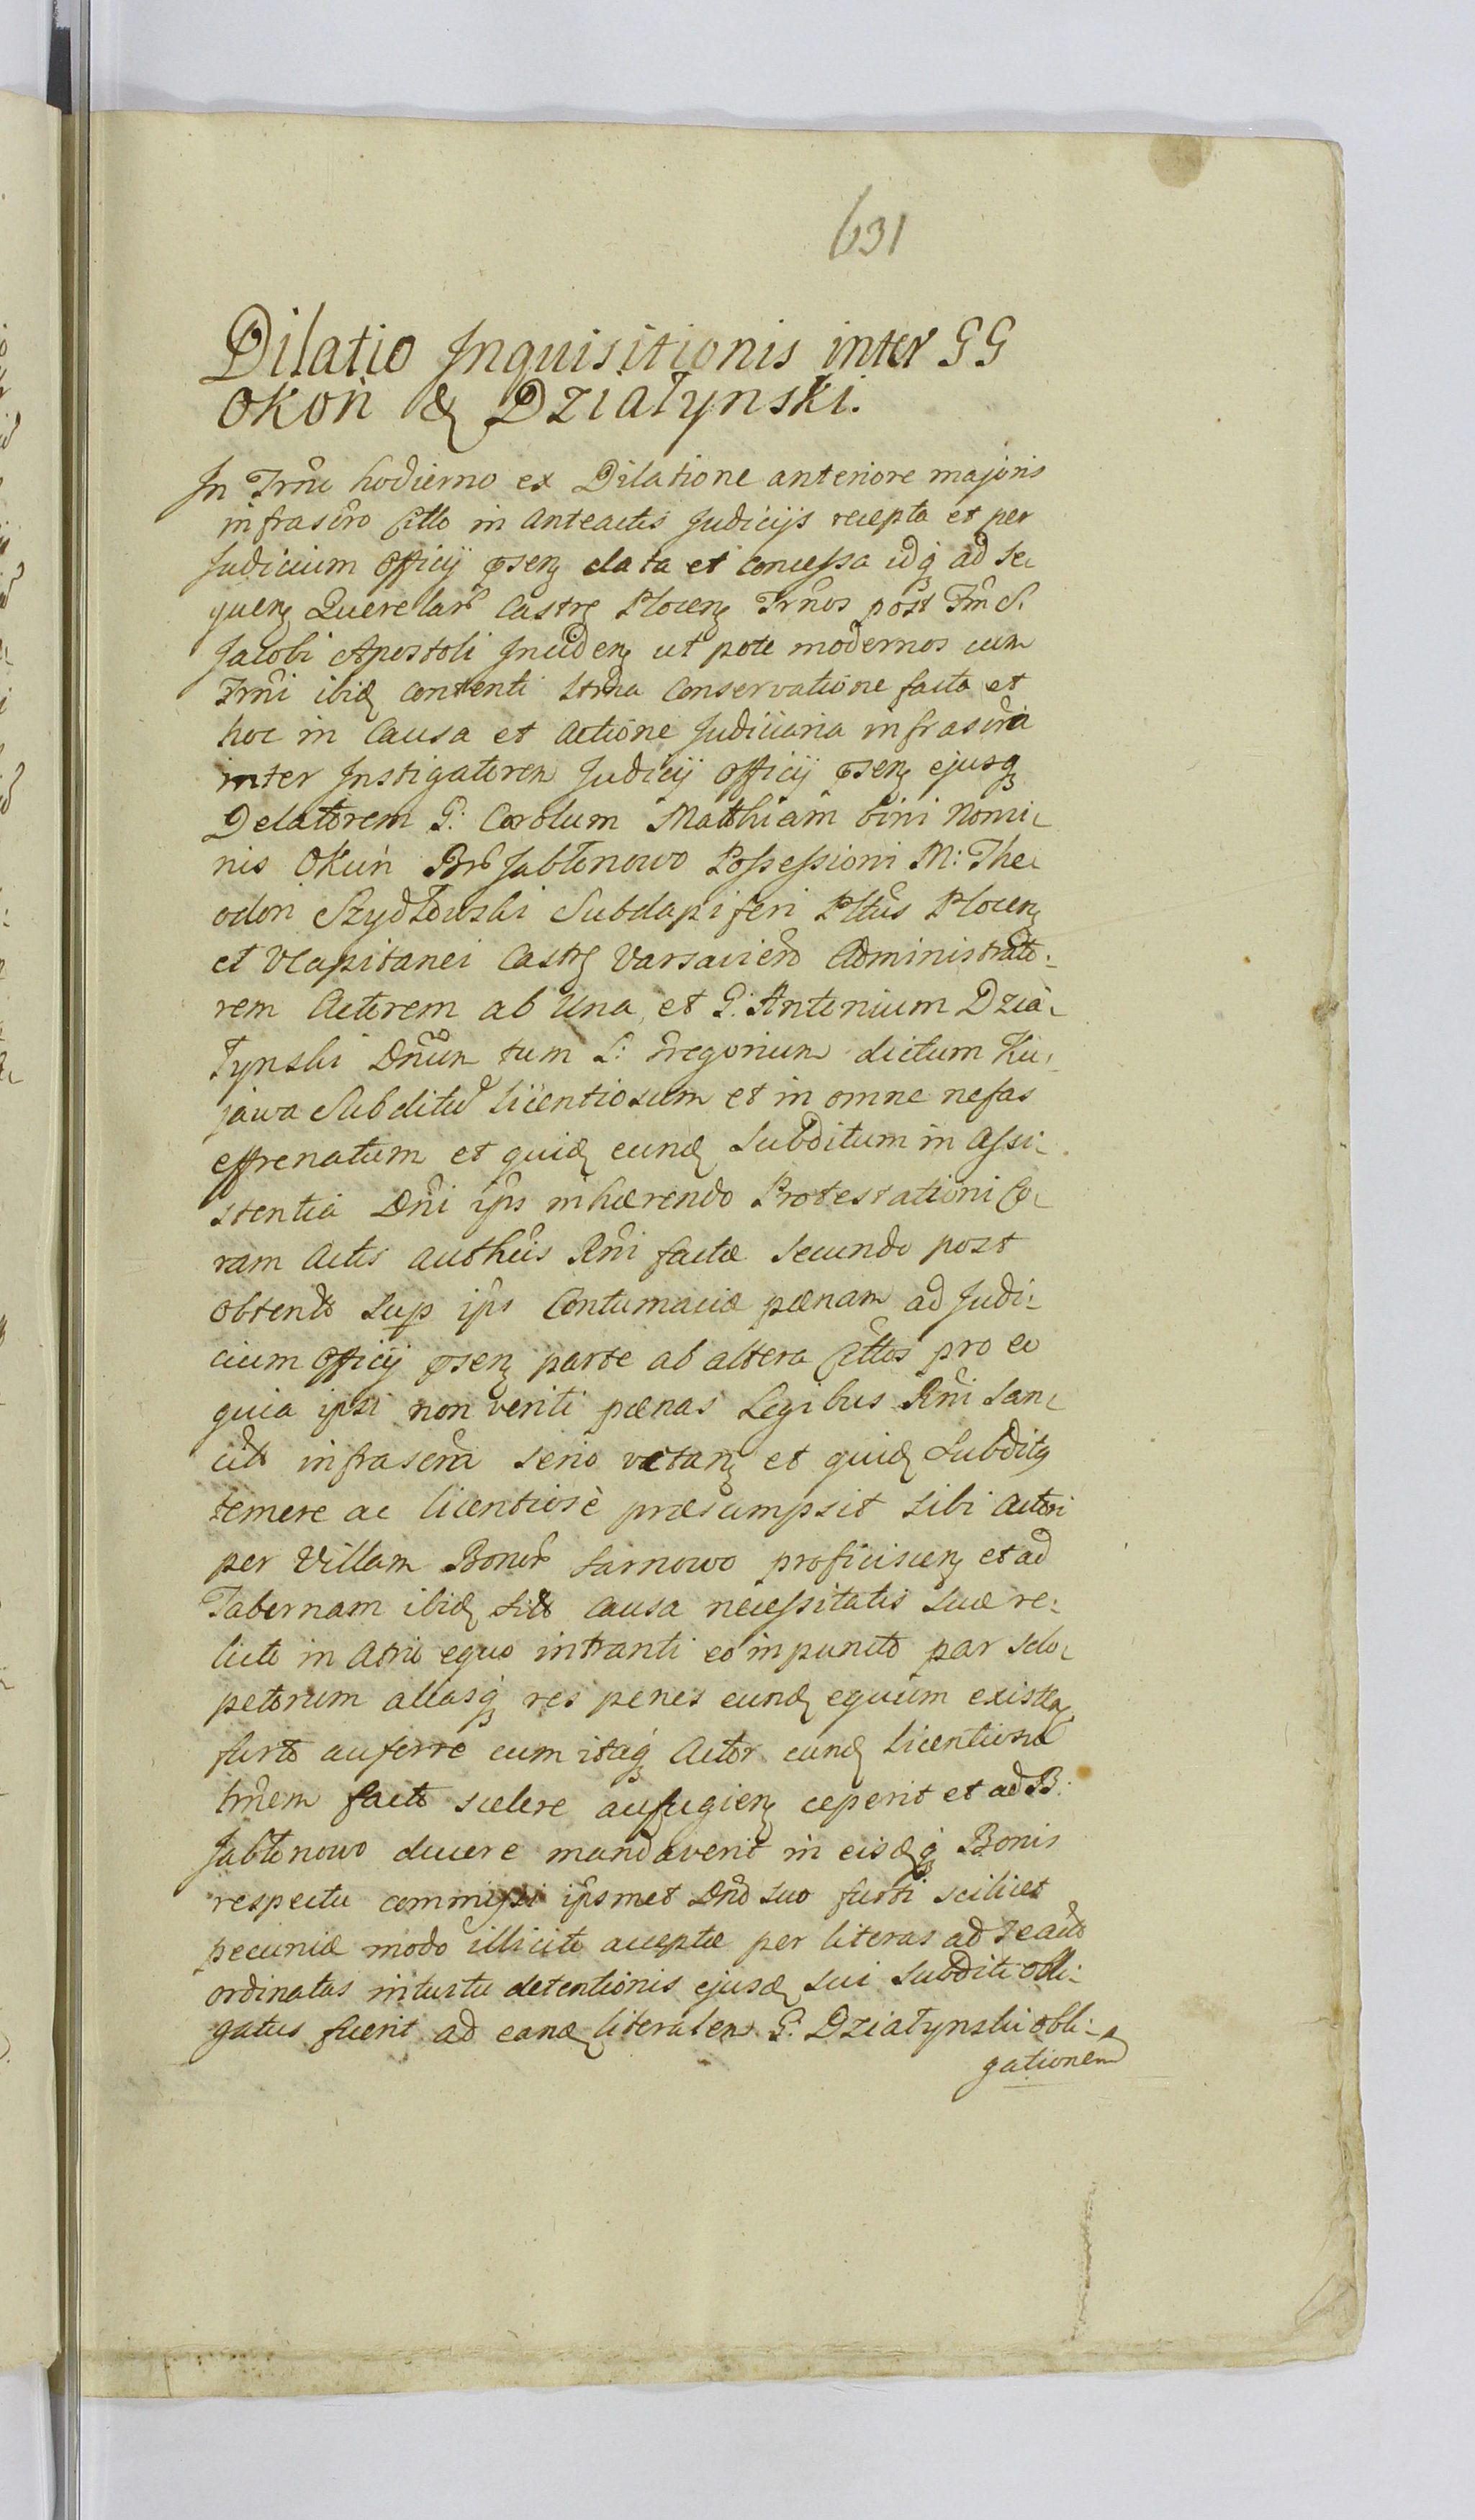 631
Dilatio Inquisitionis inter GG
Okoń & Działynski.
In Trno hodierno ex Dilatione anteriore majoris
infrascro Citto in anteactis Judicijs recepta et per
Judicium Officij psen data et concessa idq ad se-
quen Querelar Castren Plocen Trnos post Fm S.
Jacobi Apostoli Inciden ut pote modernos cum
Trmi ibid contenti conservatione facta et
hoc in Causa et Actione Judiciaria infrascra
inter Instigatorem Judicij Officij psen ejusq
Delatorem G: Carolum Matthiam bini Nomi-
nis Okuń Br Jabłonowo Possessioni M: The-
odori Szydłowski Subdapiferi Pltus Plocen
et VCapitanei Castr Varsavien Administrato-
rem Actorem ab una, et G: Antonium Dzia-
łynski Dnum tum L: Gregorium dictum Ku-
jawa Subditu licentiosum et in omne nefas
effrenatum et quid eund Subditum in Assi-
stentia Dni ips inhærendo Protestationi Co-
ram Actis autheis Rni factæ secundo post
obtento sup ips Contumaciæ pænam ad Judi-
cium Officij psen parte ab altera Cittos pro eo
quia ipsi non veriti pænas Legibus Rni San-
cit infrascra serio vetan et quid Subditq
temere ac licentiosè præsumpsit sibi Actori
per Villam Bonor Sarnowo proficiscen et ad
Tabernam ibid sit causa necessitatis suæ re-
licto in Atrio equo intranti eo in puncto par sclo-
petorum aliasq res penes eund equum existen
furto auferre cum itaq Actor eund licentiosu
hnem facto scelere aufugien ceperit et ad B:
Jabłonowo ducere mandaverit in eisdq Bonis
respectu commissi ipsmet Dno suo furti scilicet
pecuniæ modo illicito acceptæ per literas ad
ordinatas intuitu detentionis ejusd sui Subditi obli-
gatus fuerit ad eand literalem G: Działynski obli-
gationem